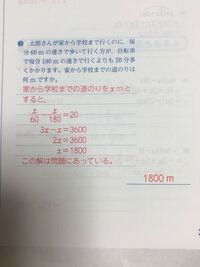 ③ 太郎さんが家から学校まで行くのに、毎
分60mの速さで歩いて行く方が、自転車
で毎分180mの速さで行くよりも20分多
くかかります。家から学校までの道のりは
何mですか。
家から学校までの道のりをxmと
すると。
x/60 - x/180 = 20
3x-x=3600
2x=3600
x=1800
この解は問題にあっている。
1800 m